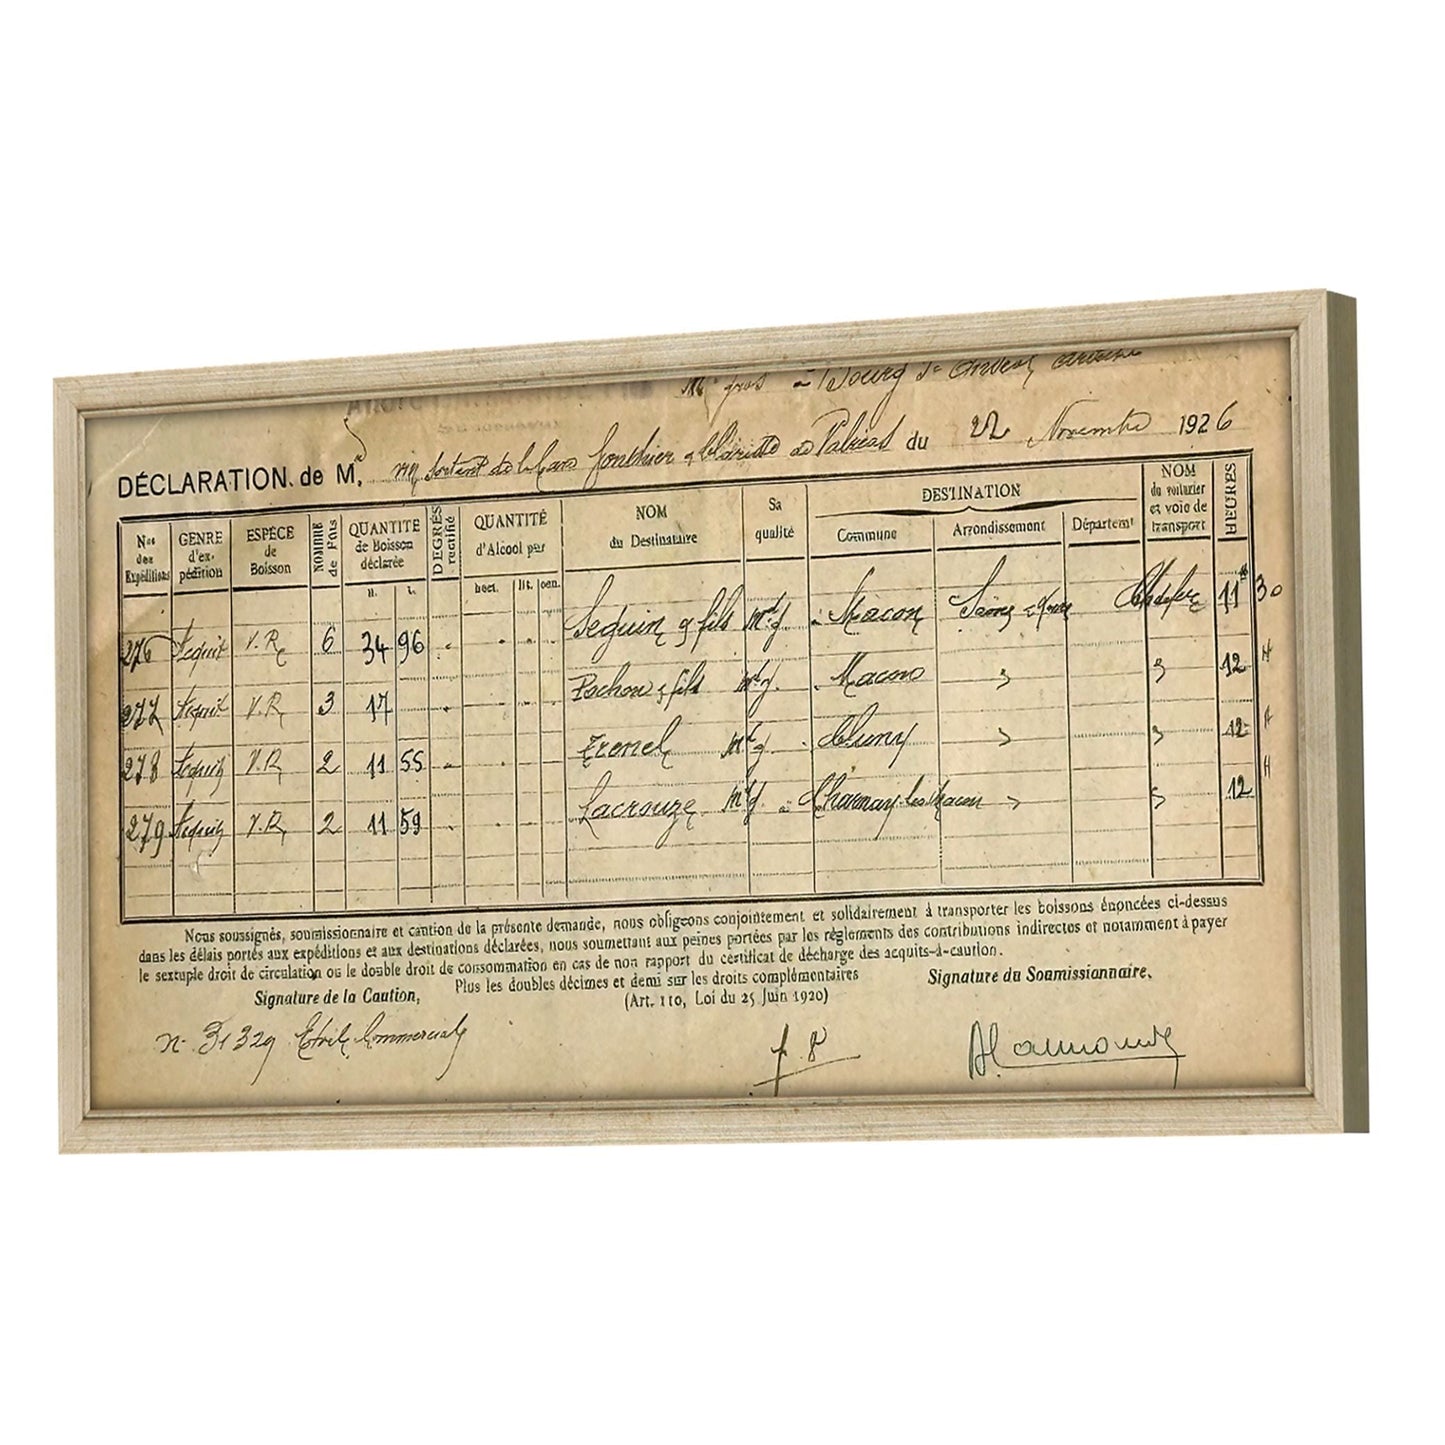 Md gros à Bourg St Andéol
DÉCLARATION de M. vin sortant de du 22 Novembre 1926
Nos des Expéditions GENRE d'expédition ESPÈCE de Boisson NOMBRE de Fûts QUANTITÉ de Boisson déclarée DEGRÉS rectifié QUANTITÉ d'Alcool pur NOM du Destinataire Sa qualité DESTINATION NOM du voiturier et voie de transport HEURES
Commune Arrondissement Départemt
H. L. hect. lit. cen.
276 Acquit V.R. 6 34 96 Seguin & fils Md g. à Macon Saône & Loire Ch de fer 11 H 30
277 Acquit V.R. 3 17 Pochon & fils Md g. Macon " " 12 H
278 Acquit V.R. 2 11 55 Md g. Cluny " " 12 H
279 Acquit V.R. 2 11 59 Lacrouze Md g. à Charnay les Macon " " 12 H
Nous soussignés, soumissionnaire et caution de la présente demande, nous obligeons conjointement et solidairement à transporter les boissons énoncées ci-dessus
dans les délais portés aux expéditions et aux destinations déclarées, nous soumettant aux peines portées par les règlements des contributions indirectes et notamment à payer
le sextuple droit de circulation ou le double droit de consommation en cas de non rapport du certificat de décharge des acquits-à-caution.
Plus les doubles décimes et demi sur les droits complémentaires
Signature de la Caution, (Art. 110, Loi du 25 Juin 1920) Signature du Soumissionnaire,
n. 31329